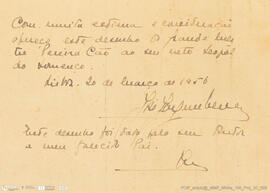 Com muita estima e consideração
ofereço este desenho do grande mes
tre Pereira Cão ao seu neto Leopol
do
Lisboa, 20 de Março de 1956
Este desenho foi dado pelo seu Autor
a meu falecido Pai.